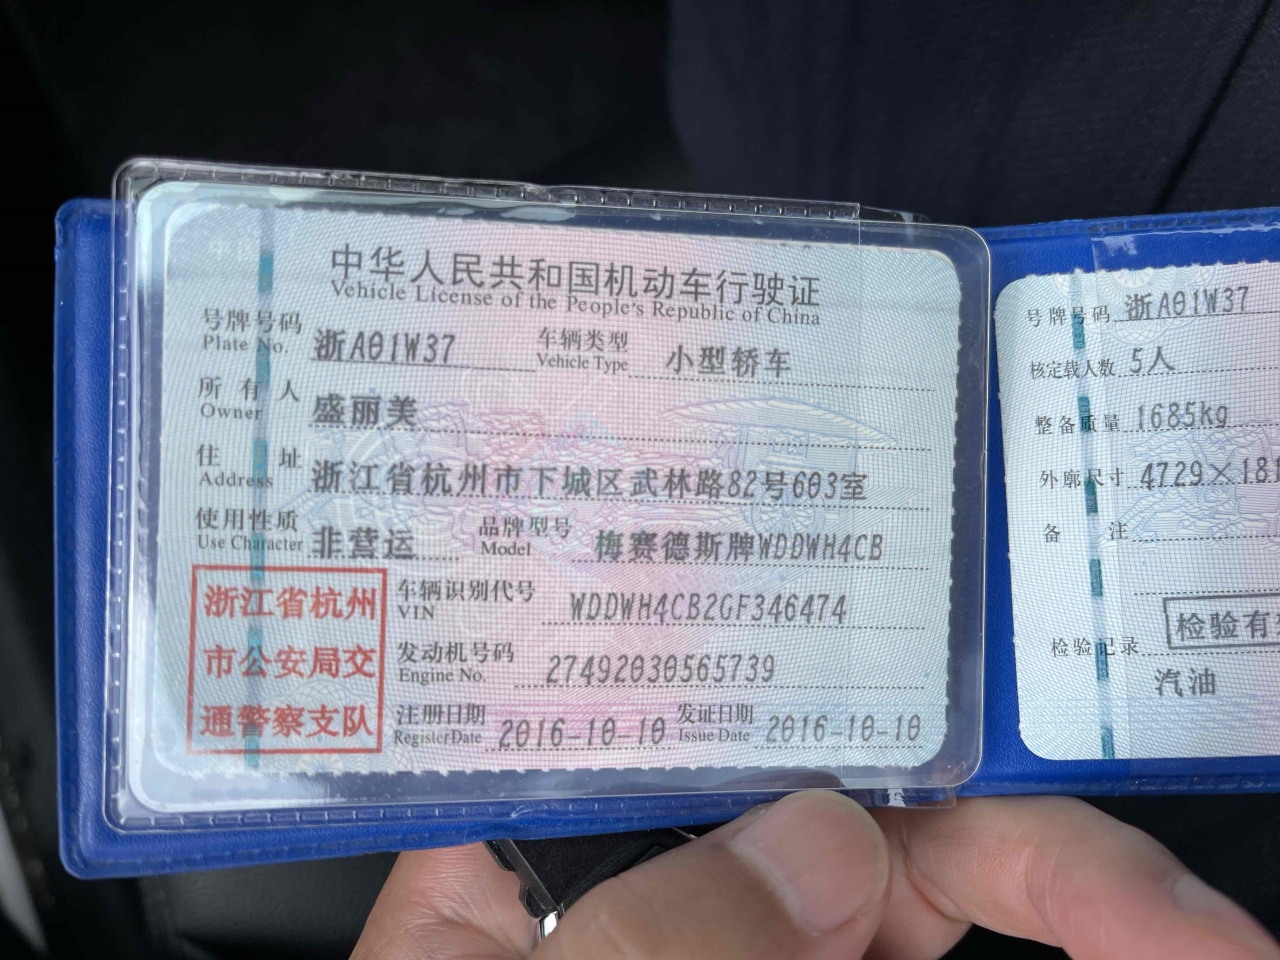 中华人民共和国机动车行驶证
Vehicle License of the People's Republic of China
号牌号码 浙A01W37 车辆类型 小型轿车
Plate No. Vehicle Type
所有人 盛丽美
Owner
住址 浙江省杭州市下城区武林路82号603室
Address
使用性质 非营运 品牌型号 梅赛德斯牌WDDWH4CB
Use Character Model
浙江省杭州
市公安局交
通警察支队
车辆识别代号 WDDWH4CB2GF346474
VIN
发动机号码 27492030565739
Engine No.
注册日期 2016-10-10 发证日期 2016-10-10
Register Date Issue Date
号牌号码 浙A01W37
核定载人数 5人
整备质量 1685kg
外廓尺寸 4729×181
备注
检验记录 检验有
汽油